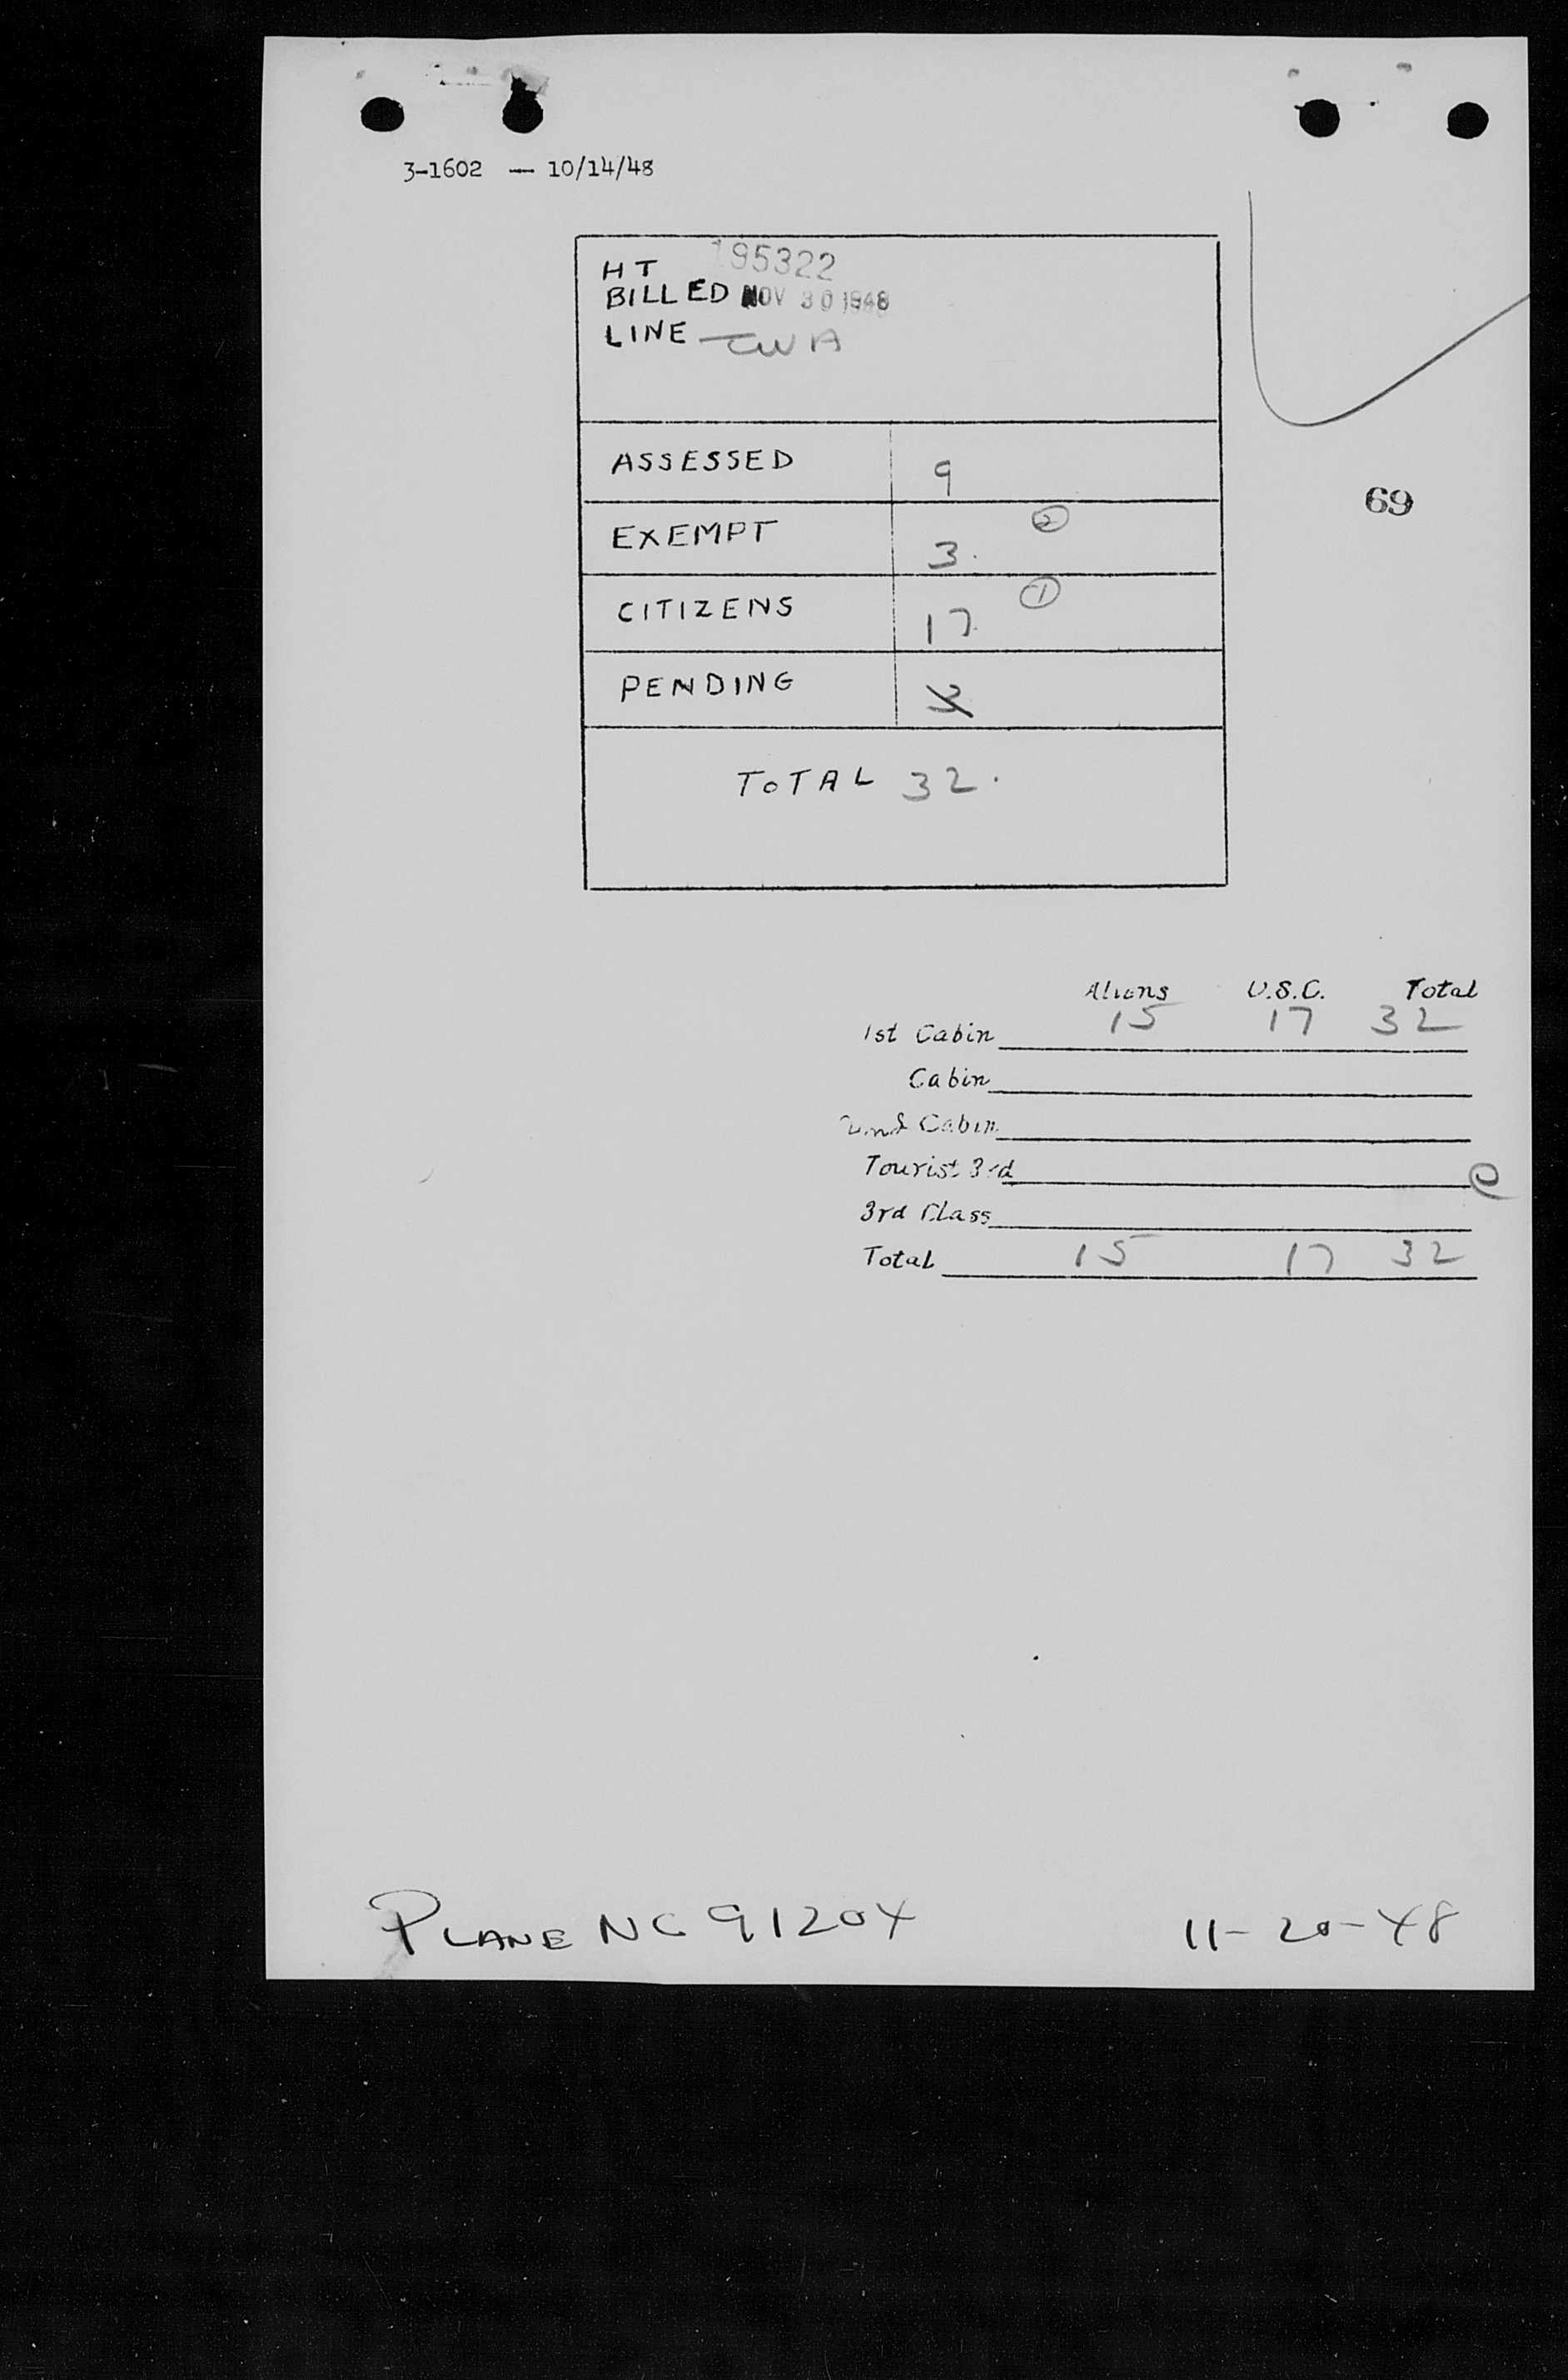 3-1602 — 10/14/48
HT 195322
BILLED NOV 30 1948
LINE TWA
ASSESSED 9
EXEMPT 3. 2
CITIZENS 17 1
PENDING
TOTAL 32.
69
Aliens U.S.C. Total
1st Cabin 15 17 32
Cabin
2nd Cabin
Tourist 3rd
3rd Class
Total 15 17 32
PLANE NC 91204 11-20-48